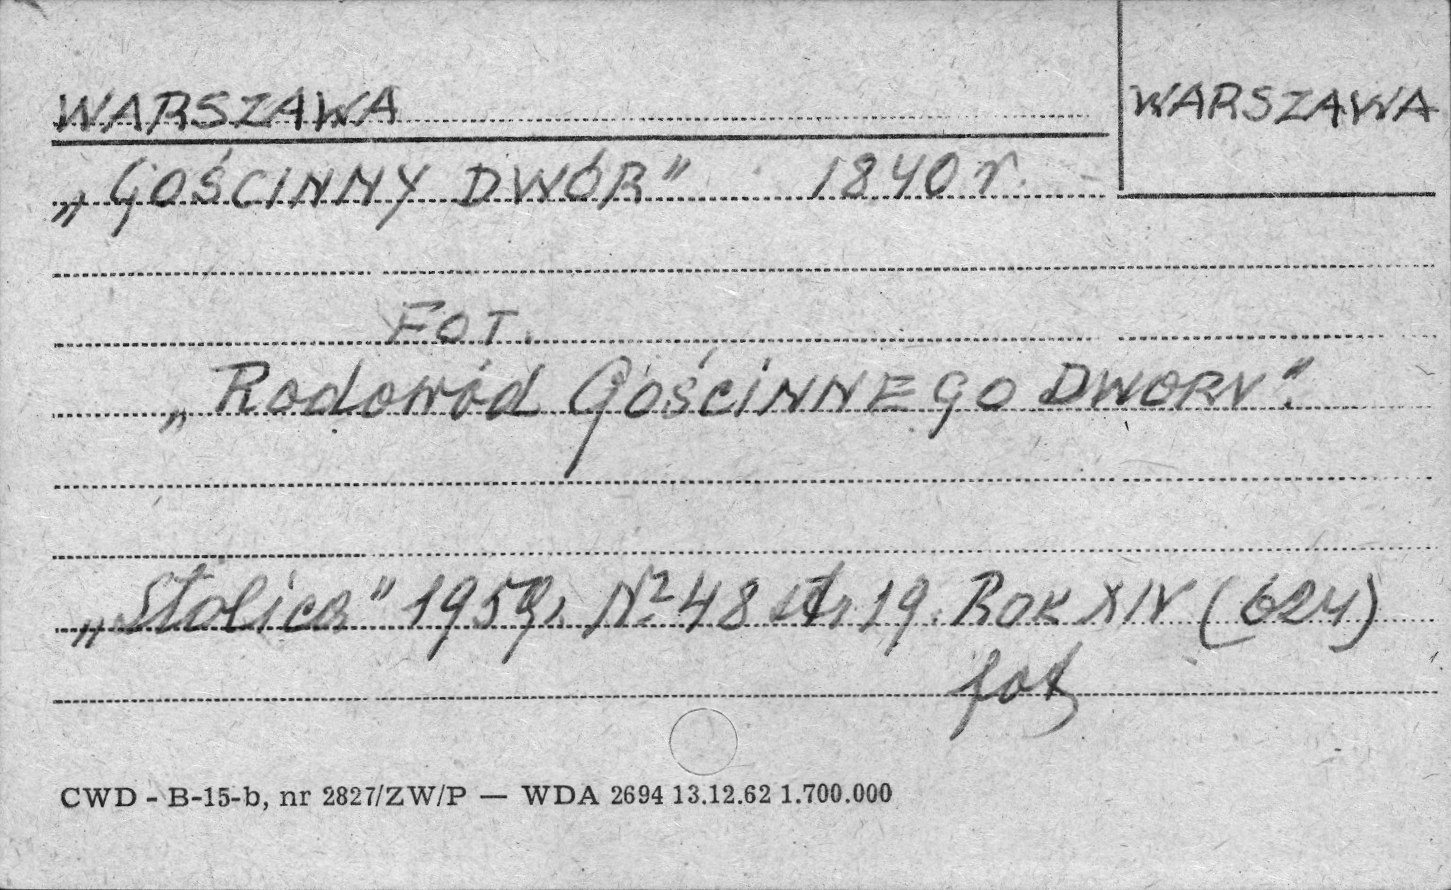 WARSZAWA
WARSZAWA
„GOŚCINNY DWÓR” 1840 r.
FOT.
„Rodowód GOŚCINNEGO DWORU”.
„Stolica” 1959r. Nº 48 str 19. Rok XIV (624)
fot
CWD - B-15-b, nr 2827/ZW/P — WDA 2694 13.12.62 1.700.000